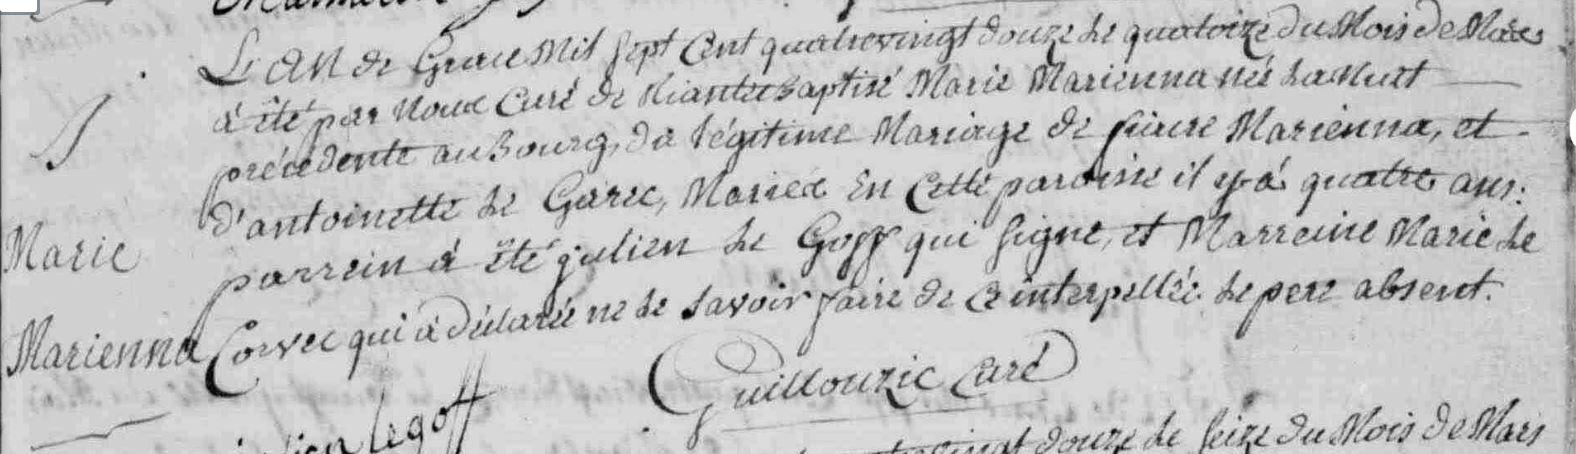 L'an de Grace Mil sept Cent quatrevingt douze le quatorze du Mois de Mars
à été par Nous Curé de Riantec Baptisé Marie Marienna née la Nuit
précédente au Bourg, du légitime Mariage de pierre Marienna, et
d'antoinette le Garec, Mariés En Cette paroisse il y à quatre ans:
Marie
parrein à été julien le Goff qui signe, et Marreine Marie le
Marienna
Corvec qui à déclaré ne le savoir faire de ce interpellée. le pere absent.
Guillouzic Curé
julien le goff
douze le seize du Mois de Mars